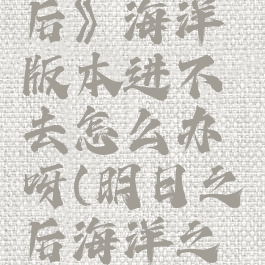 后》海洋
版本进不
去怎么办
呀(明日之
后海洋之